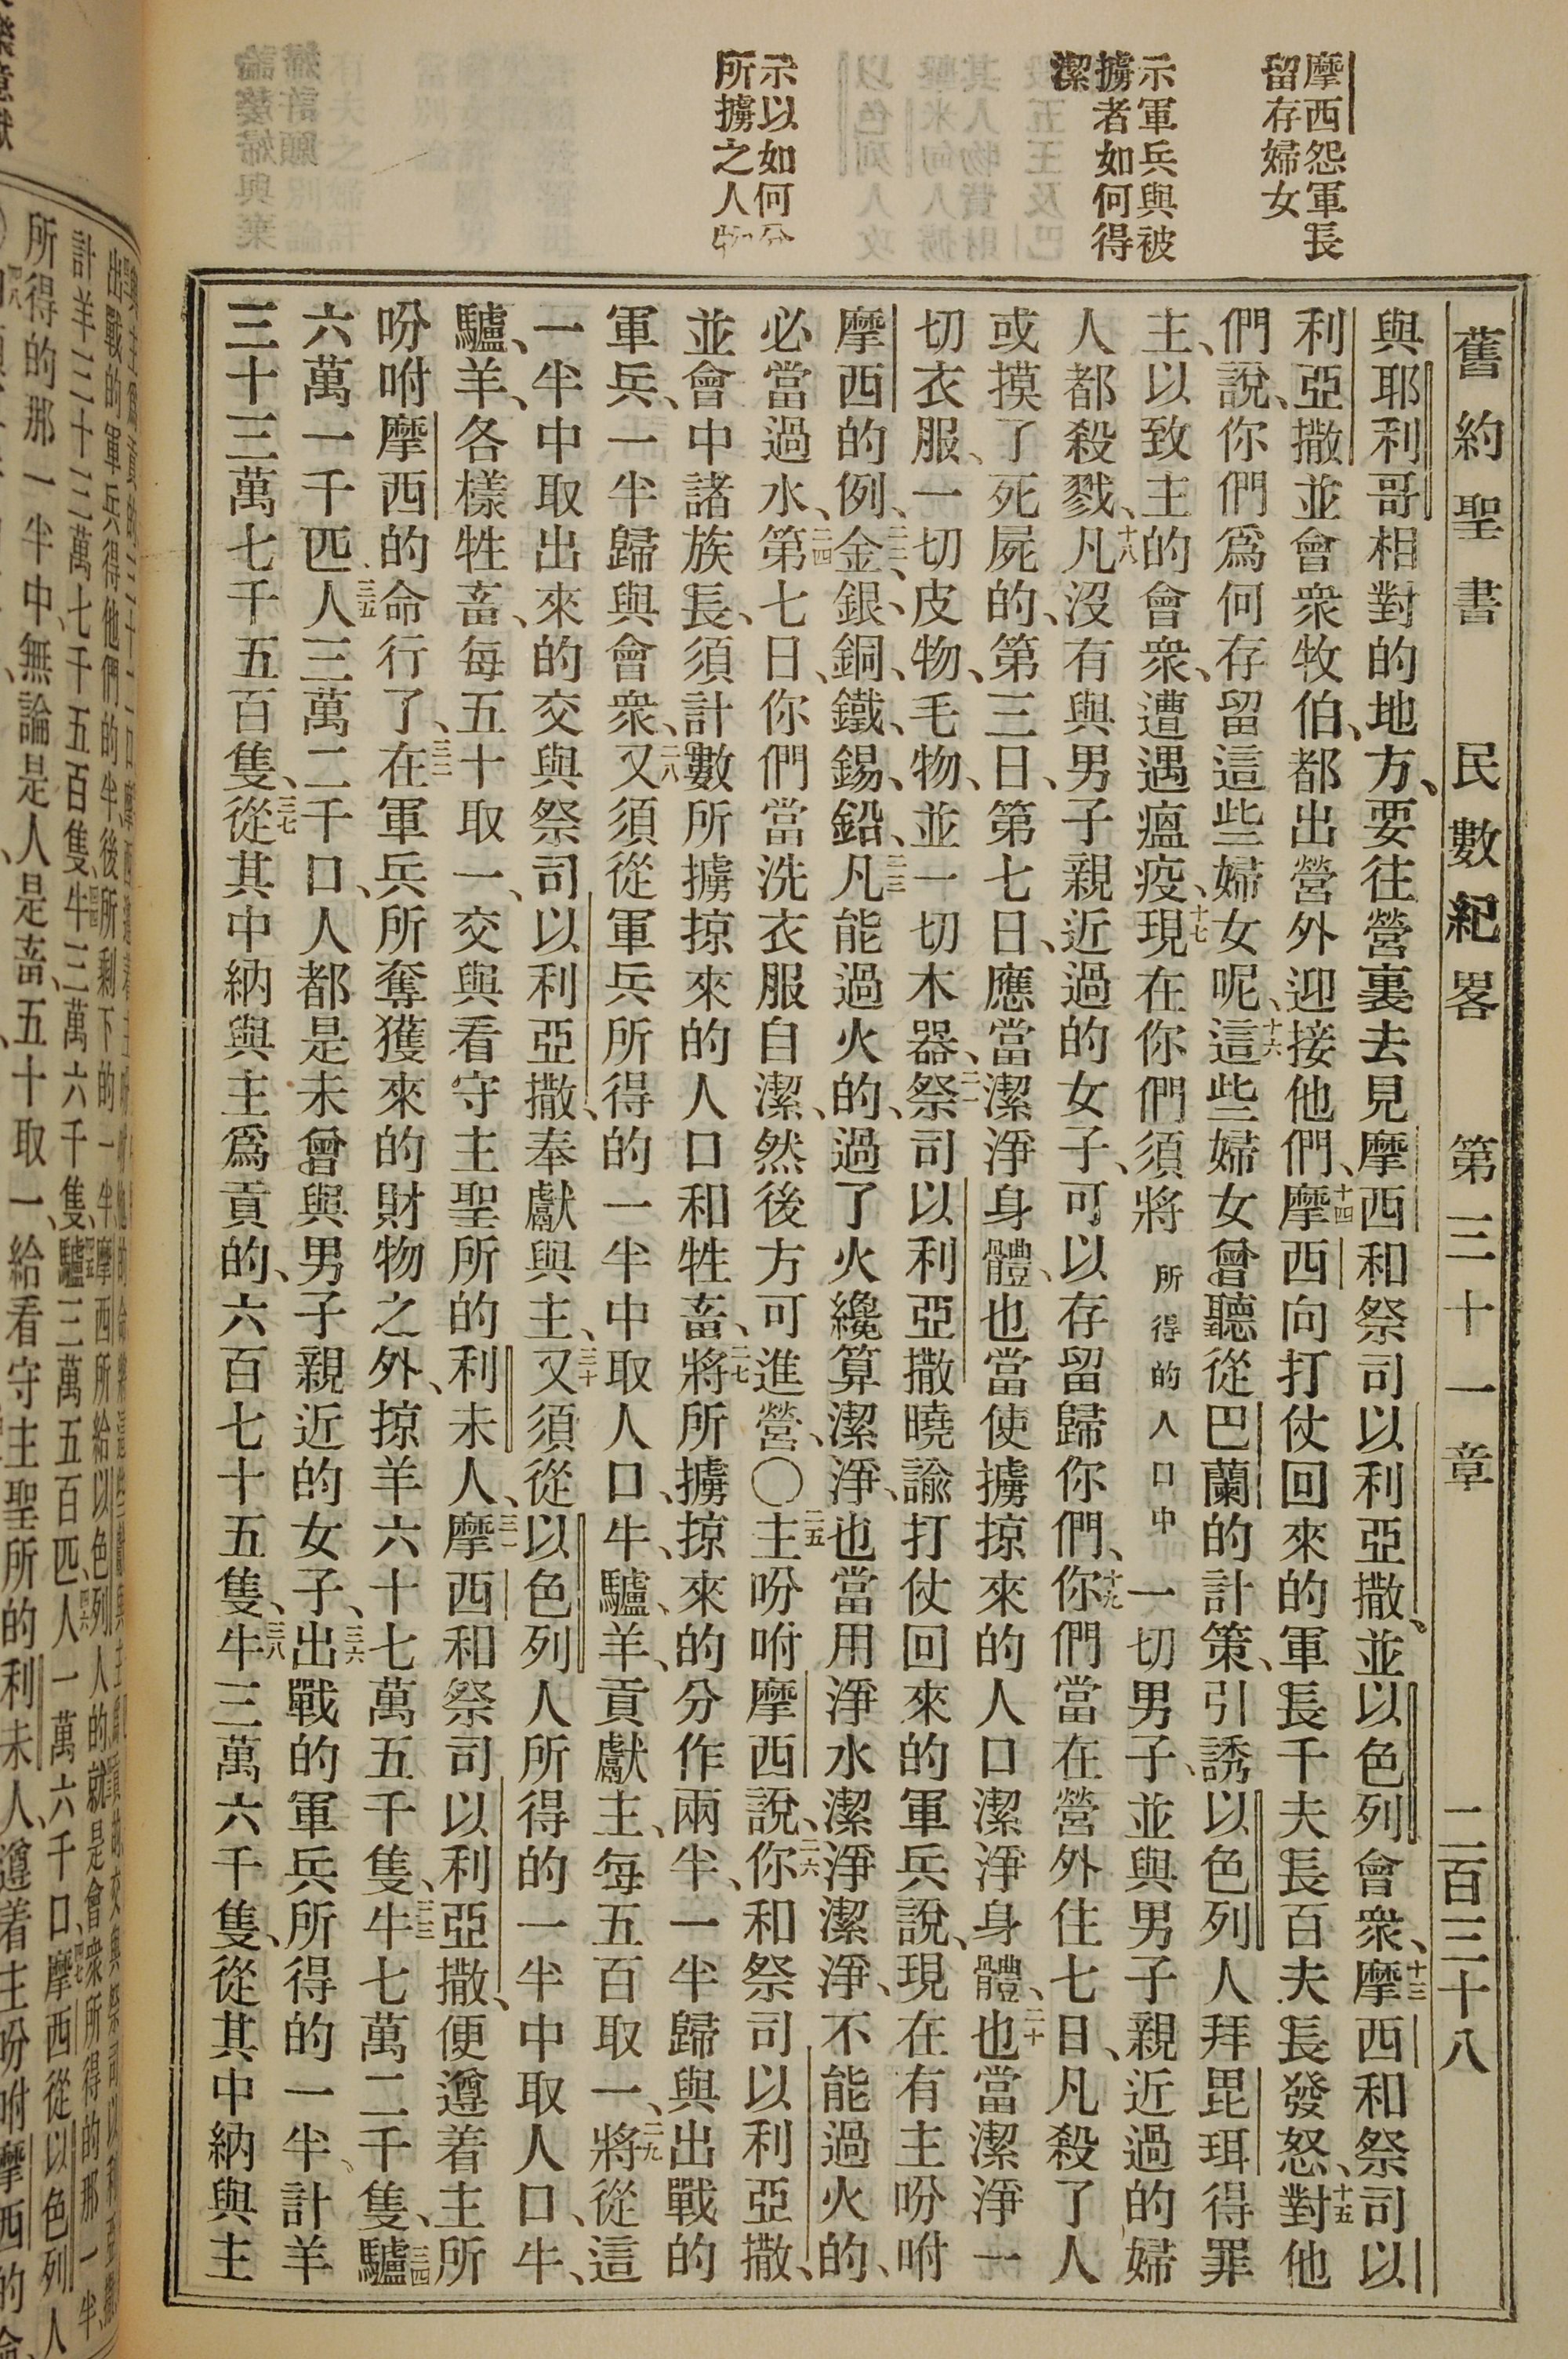 摩西怨軍長
留存婦女
示軍兵與被
擄者如何得
潔
示以如何分
所擄之人物
舊約聖書 民數紀畧 第三十一章 二百三十八
與耶利哥相對的地方、要往營裏去見摩西和祭司以利亞撒、並以色列會衆、十三摩西和祭司以
利亞撒並會衆牧伯、都出營外迎接他們、十四摩西向打仗回來的軍長千夫長百夫長發怒、十五對他
們說、你們爲何存留這些婦女呢、十六這些婦女曾聽從巴蘭的計策、引誘以色列人拜毘珥得罪
主、以致主的會衆、遭遇瘟疫、十七現在你們須將所得的人口中一切男子、並與男子親近過的婦
人都殺戮、十八凡沒有與男子親近過的女子、可以存留歸你們、十九你們當在營外住七日、凡殺了人
或摸了死屍的、第三日、第七日、應當潔淨身體、也當使擄掠來的人口潔淨身體、二十也當潔淨一
切衣服、一切皮物、毛物、並一切木器、二一祭司以利亞撒曉諭打仗回來的軍兵說、現在有主吩咐
摩西的例、二二金、銀、銅、鐵、錫、鉛、二三凡能過火的、過了火纔算潔淨、也當用淨水潔淨潔淨、不能過火的、
必當過水、二四第七日、你們當洗衣服自潔、然後方可進營、〇二五主吩咐摩西說、二六你和祭司以利亞撒、
並會中諸族長、須計數所擄掠來的人口和牲畜、二七將所擄掠來的分作兩半、一半歸與出戰的
軍兵、一半歸與會衆、二八又須從軍兵所得的一半中取人口、牛、驢、羊、貢獻主、每五百取一、二九將從這
一半中取出來的交與祭司以利亞撒、奉獻與主、三十又須從以色列人所得的一半中取人口、牛、
驢、羊、各樣牲畜、每五十取一、交與看守主聖所的利未人、三一摩西和祭司以利亞撒、便遵着主所
吩咐摩西的命行了、三二在軍兵所奪獲來的財物之外、掠羊六十七萬五千隻、三三牛七萬二千隻、三四驢
六萬一千匹、三五人三萬二千口、人都是未曾與男子親近的女子、三六出戰的軍兵所得的一半、計羊
三十三萬七千五百隻、三七從其中納與主爲貢的、六百七十五隻、三八牛三萬六千隻、從其中納與主
計羊三十三萬七千五百隻、牛三萬六千隻、驢三萬五百匹、人一萬六千口、摩西從以色列人
所得的那一半中、無論是人是畜、五十取一、給看守主聖所的利未人、遵着主吩咐摩西的命